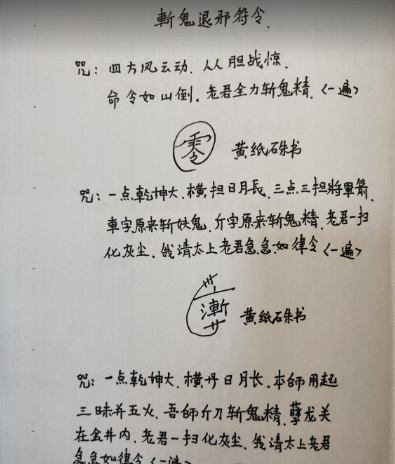 斬鬼退邪符令.
咒: 四方风云动. 人人胆战惊.
命令如山倒. 老君全力斩鬼精. <一遍>
零 黄纸硃书
咒: 一点乾坤大. 横担日月長. 三点三担將軍箭.
車字原来斩妖鬼. 斤字原来斩鬼精. 老君一扫
化灰尘. 俄请太上老君急急如律令 <一遍>
漸 黄纸硃书
咒: 一点乾坤大. 横丹日月长. 本師用起
三昧并五火. 吾師斤刀斬鬼精. 孽龙关
在金井内. 老君一扫化灰尘. 俄请太上老君
急急如律令 <一遍>